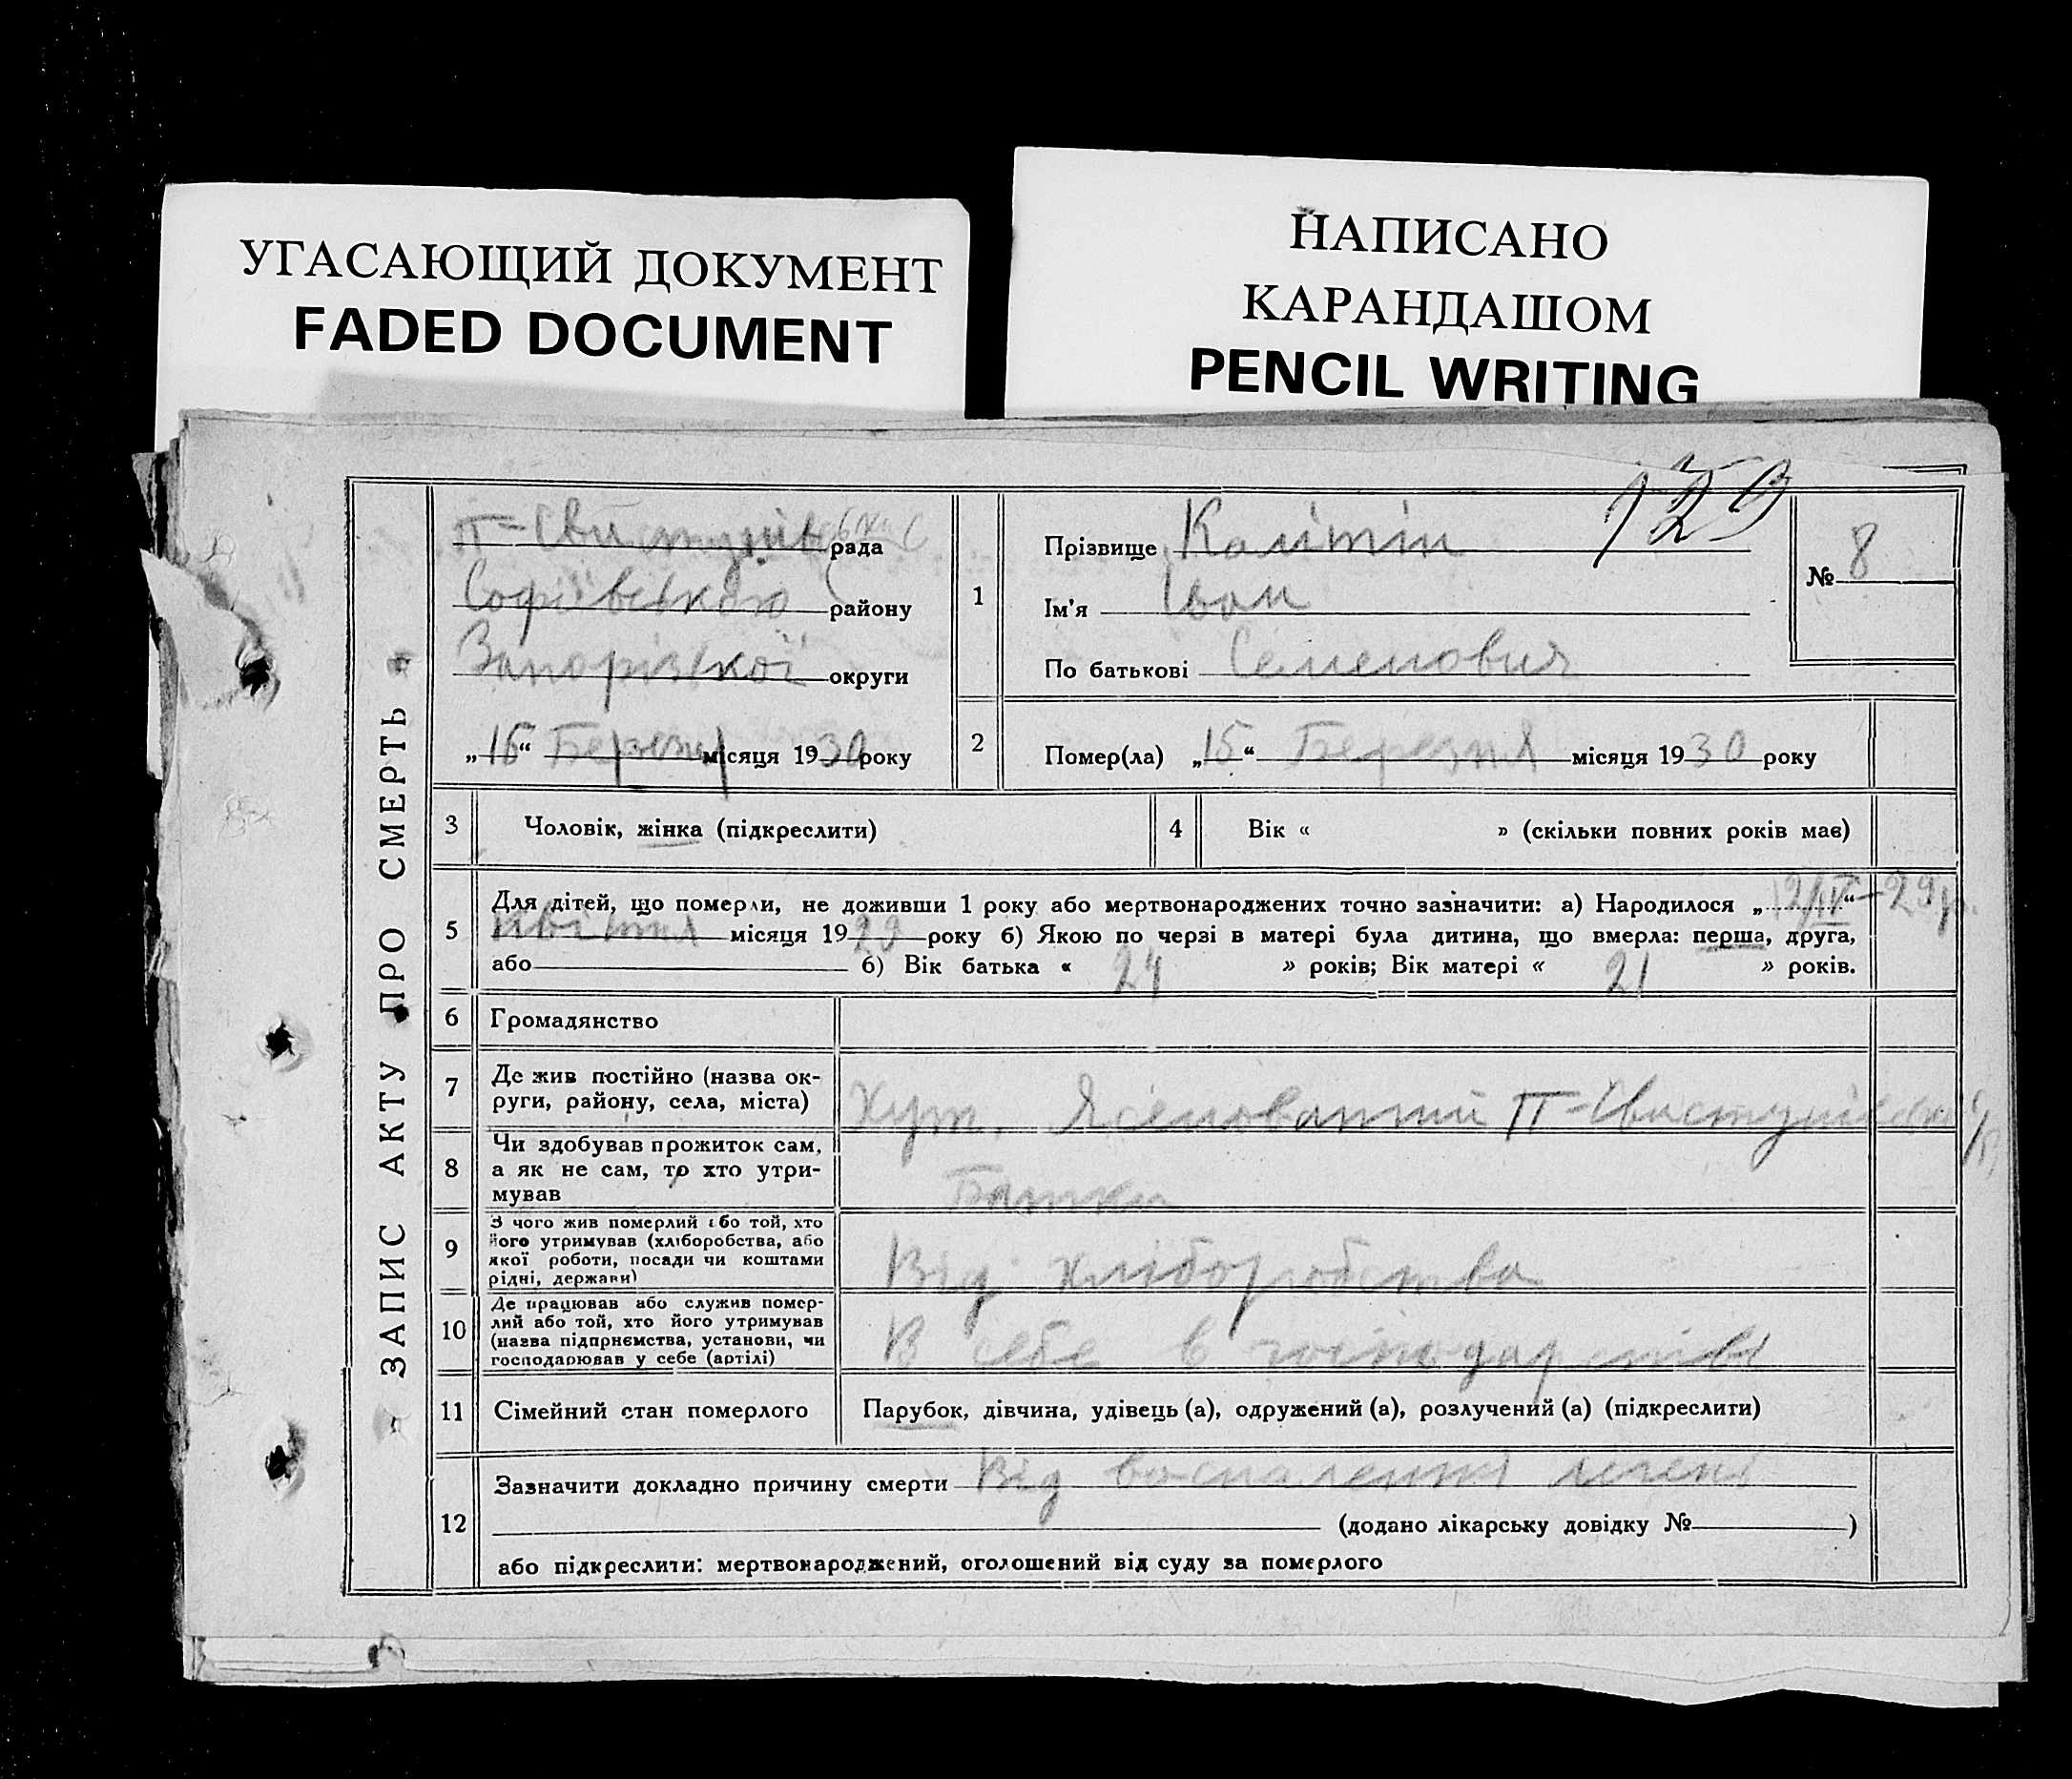 УГАСАЮЩИЙ ДОКУМЕНТ
FADED DOCUMENT
НАПИСАНО
КАРАНДАШОМ
PENCIL WRITING
129
ЗАПИС АКТУ ПРО СМЕРТЬ
П-Свистунівськ рада
Софіївського району
Запорізької округи
„16“ Березня місяця 1930 року
1
Прізвище Калітін
Ім'я Іван
По батькові Семенович
№ 8
2
Помер(ла) „15“ Березня місяця 1930 року
3 Чоловік, жінка (підкреслити)
4 Вік « » (скільки повних років має)
5 Для дітей, що померли, не доживши 1 року або мертвонароджених точно зазначити: а) Народилося „12/IV“-29р.
Квітня місяця 1929 року б) Якою по черзі в матері була дитина, що вмерла: перша, друга,
або б) Вік батька « 24 » років; Вік матері « 21 » років.
6 Громадянство
7 Де жив постійно (назва ок-
руги, району, села, міста)
Хут. Ясеноватий П-Свистунів
8 Чи здобував прожиток сам,
а як не сам, то хто утри-
мував
Батьки
9 З чого жив померлий або той, хто
його утримував (хліборобства, або
якої роботи, посади чи коштами
рідні, держави)
Від хліборобства
10 Де працював або служив помер-
лий або той, хто його утримував
(назва підприємства, установи, чи
господарював у себе (артілі)
В себе в господарстві
11 Сімейний стан померлого
Парубок, дівчина, удівець (а), одружений (а), розлучений (а) (підкреслити)
12 Зазначити докладно причину смерти Від воспалення легені
(додано лікарську довідку № )
або підкреслити: мертвонароджений, оголошений від суду за померлого